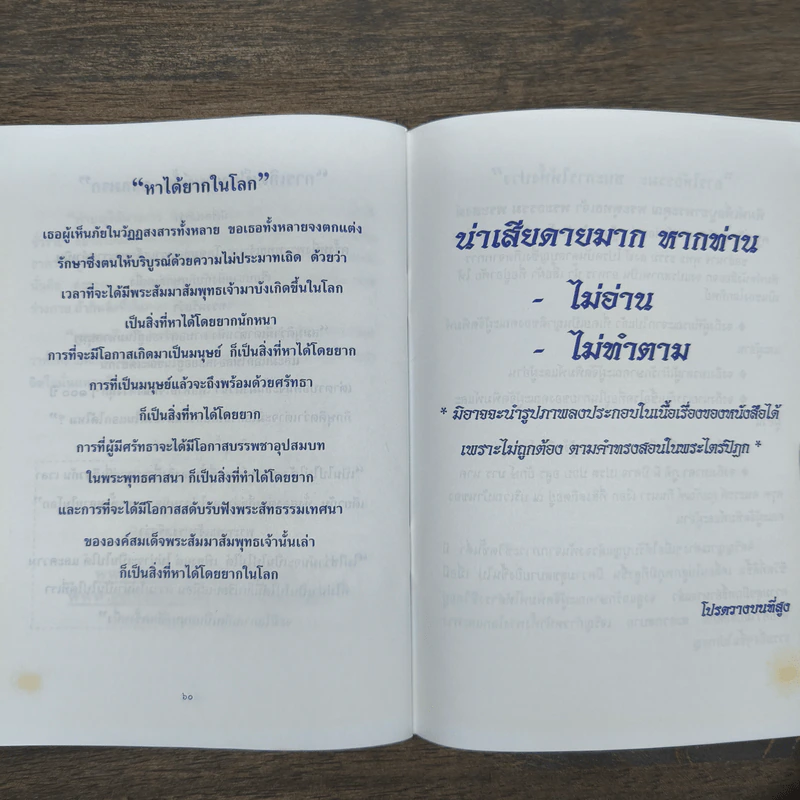 “หาได้ยากในโลก”
เธอผู้เห็นภัยในวัฏฏสงสารทั้งหลาย ขอเธอทั้งหลายจงตกแต่ง
รักษาซึ่งตนให้บริบูรณ์ด้วยความไม่ประมาทเถิด ด้วยว่า
เวลาที่จะได้มีพระสัมมาสัมพุทธเจ้ามาบังเกิดขึ้นในโลก
เป็นสิ่งที่หาได้โดยยากนักหนา
การที่จะมีโอกาสเกิดมาเป็นมนุษย์ ก็เป็นสิ่งที่หาได้โดยยาก
การที่เป็นมนุษย์แล้วจะถึงพร้อมด้วยศรัทธา
ก็เป็นสิ่งที่หาได้โดยยาก
การที่ผู้มีศรัทธาจะได้มีโอกาสบรรพชาอุปสมบท
ในพระพุทธศาสนา ก็เป็นสิ่งที่ทำได้โดยยาก
และการที่จะได้มีโอกาสสดับรับฟังพระสัทธรรมเทศนา
ขององค์สมเด็จพระสัมมาสัมพุทธเจ้านั้นเล่า
ก็เป็นสิ่งที่หาได้โดยยากในโลก
๖๐
น่าเสียดายมาก หากท่าน
- ไม่อ่าน
- ไม่ทำตาม
* มิอาจจะนำรูปภาพลงประกอบในเนื้อเรื่องของหนังสือได้
เพราะไม่ถูกต้อง ตามคำทรงสอนในพระไตรปิฎก *
โปรดวางบนที่สูง